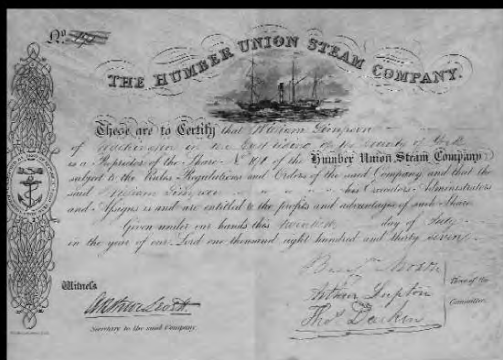 No.
THE HUMBER UNION STEAM COMPANY.
These are to Certify that William Simpson
of in the East Riding of the County of York
is a Proprietor of the Share No. of the Humber Union Steam Company
subject to the Rules Regulations and Orders of the said Company and that the
said William Simpson his Executors Administrators
and Assigns is and are entitled to the profits and advantages of such Share.
Given under our hands this day of July
in the year of our Lord one thousand eight hundred and thirty seven
Witness
Secretary to the said Company
Arthur Lupton
Thos. Darkin
three of the
Committee.